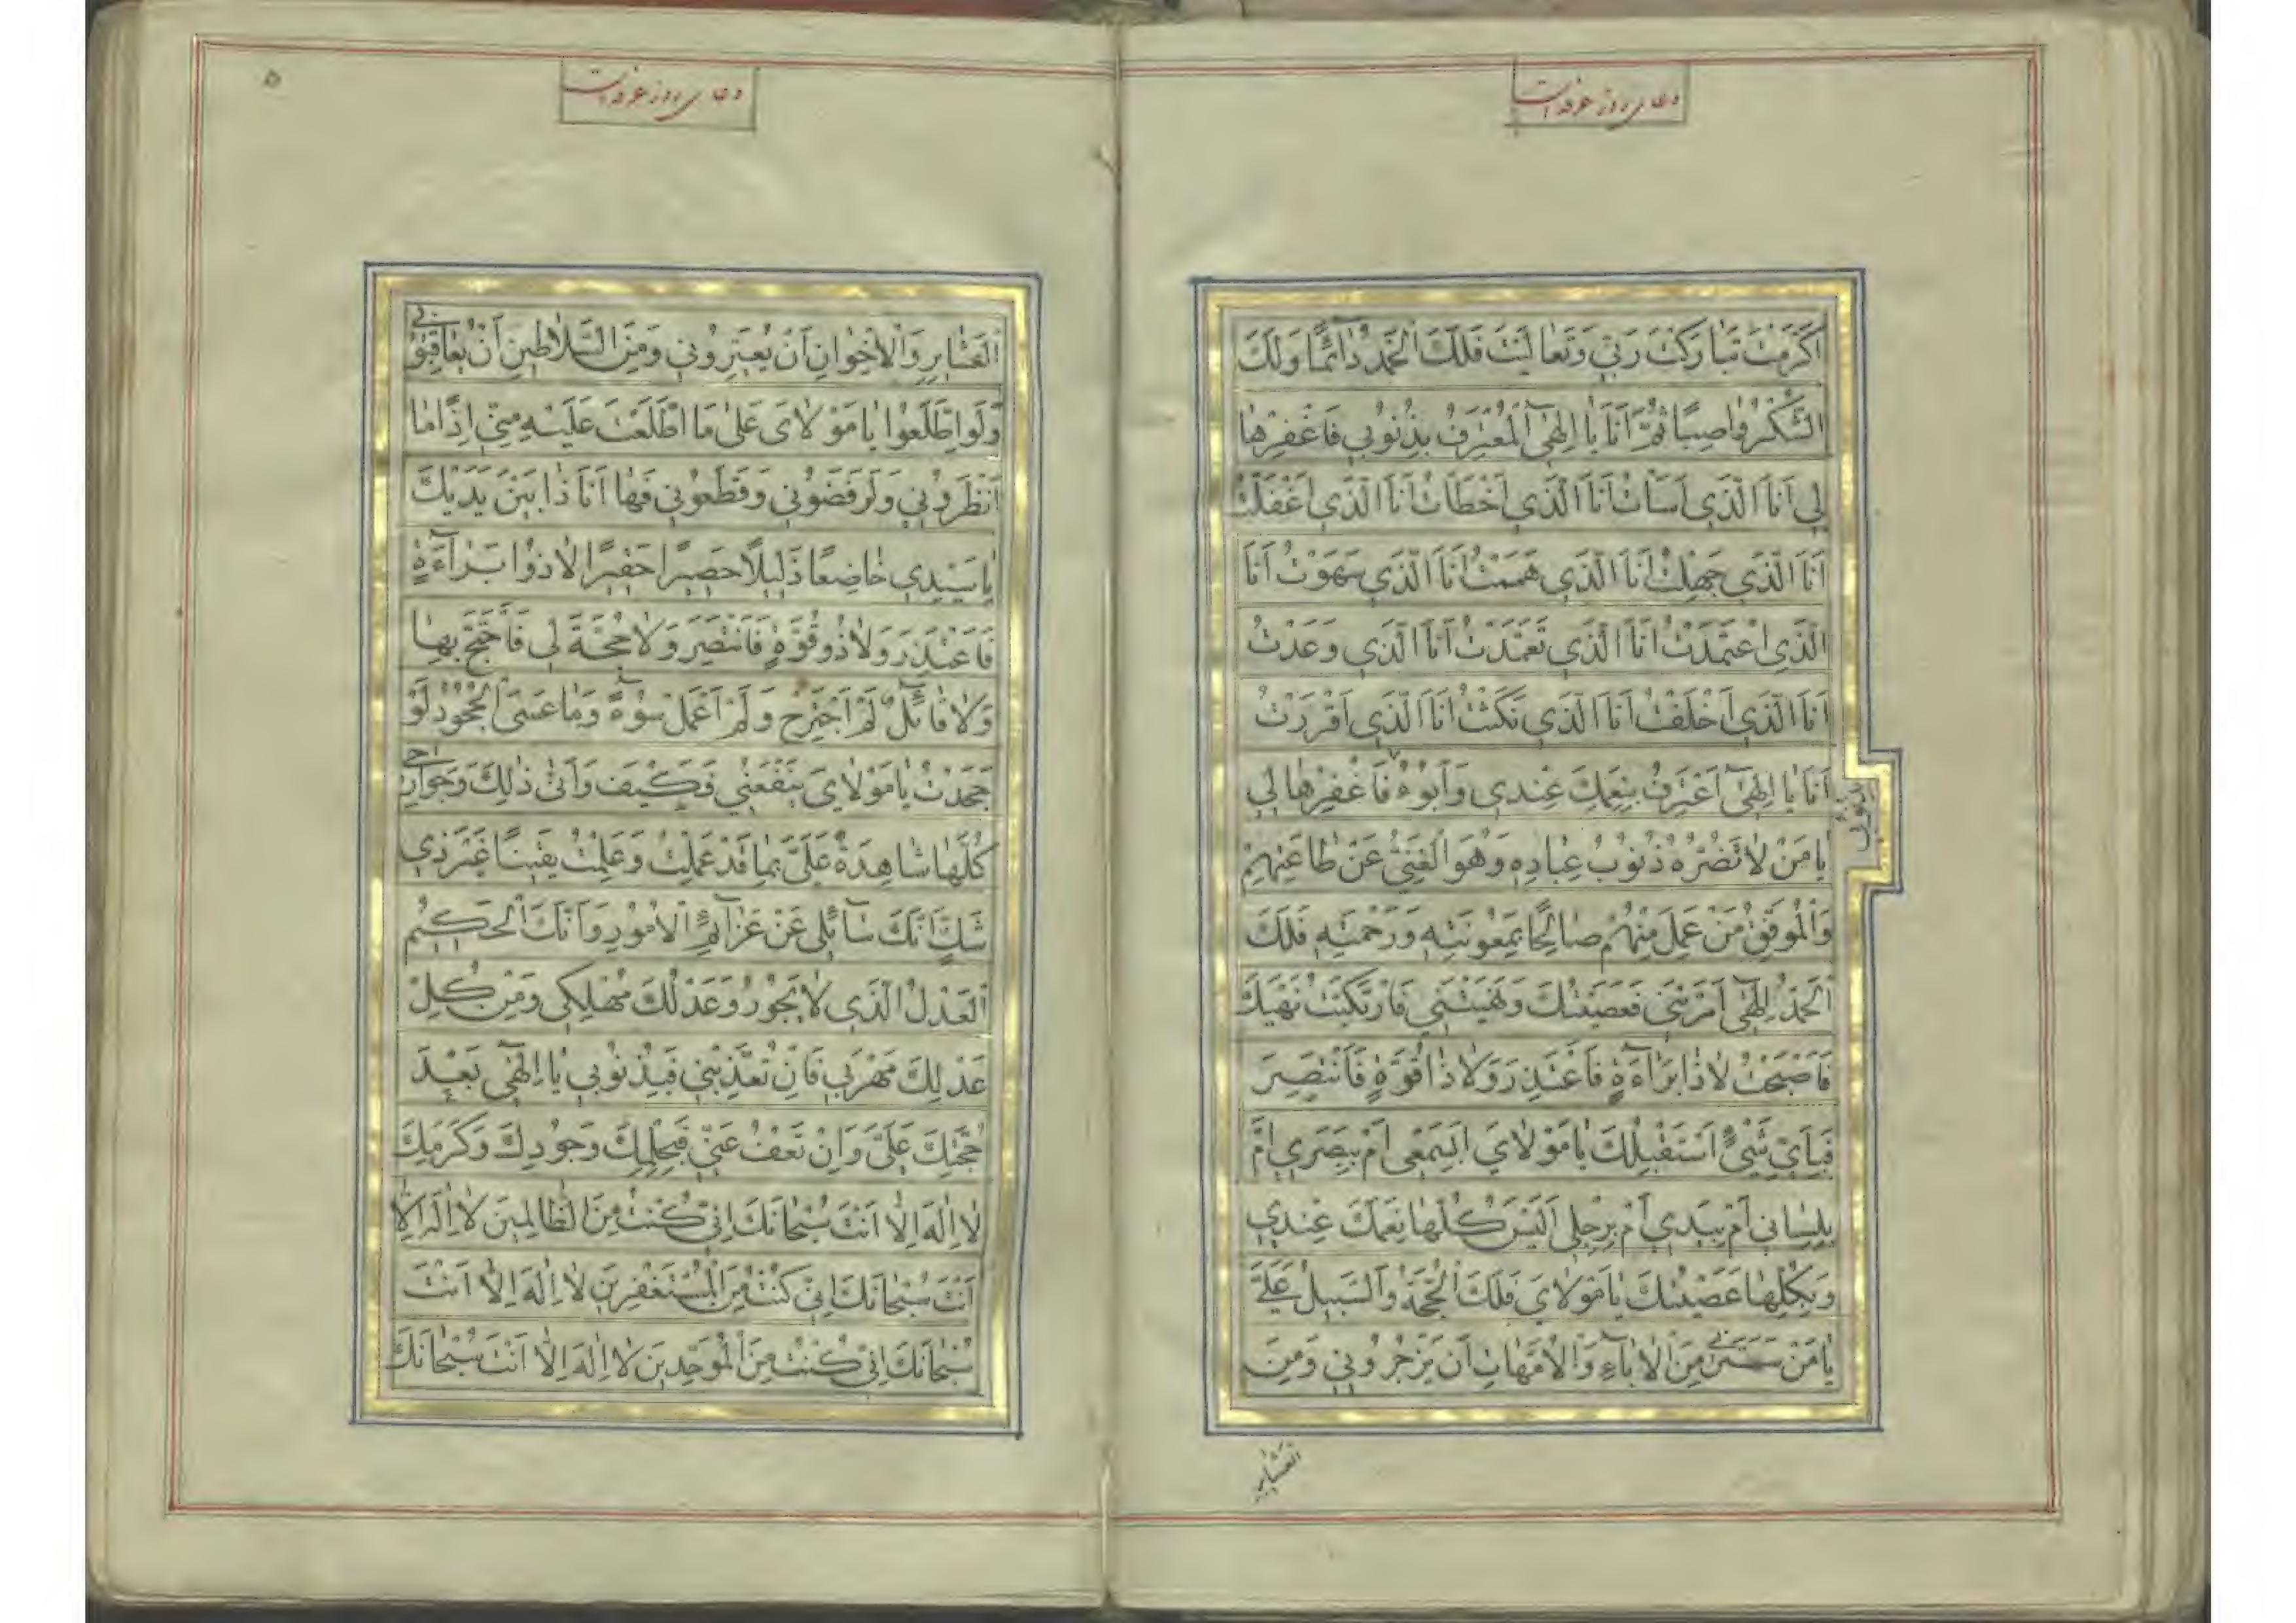 دعای روز عرفه است
اَکْرَمْتَ تَبٰارَکْتَ رَبّی وَ تَعٰالَیْتَ فَلَکَ الْحَمْدُ دٰآئِمًا وَلَکَ
الشُّکْرُ وٰاصِبًا ثُمَّ اَنَا یٰا اِلٰهیٓ الْمُعْتَرِفُ بِذُنُوبی فَاغْفِرْهٰا
لی اَنَا الَّذی اَسَاْتُ اَنَا الَّذی اَخْطَاْتُ اَنَا الَّذی اَغْفَلْتُ
اَنَا الَّذی جَهِلْتُ اَنَا الَّذی هَمَمْتُ اَنَا الَّذی سَهَوْتُ اَنَا
الَّذِی اعْتَمَدْتُ اَنَا الَّذی تَعَمَّدْتُ اَنَا الَّذی وَعَدْتُ
اَنَا الَّذی اَخْلَفْتُ اَنَا الَّذی نَکَثْتُ اَنَا الَّذی اَقْرَرْتُ
اَنَا یٰا اِلٰهیٓ اَعْتَرِفُ بِنِعَمِکَ عِنْدی وَ اَبُوءُ فَاغْفِرْهٰا لی
یٰا مَنْ لٰا تَضُرُّهُ ذُنُوبُ عِبٰادِهِ وَ هُوَ الْغَنِیُّ عَنْ طٰاعَتِهِمْ
وَالْمُوَفِّقُ مَنْ عَمِلَ مِنْهُمْ صٰالِحًا بِمَعُونَتِهِ وَ رَحْمَتِهِ فَلَکَ
الْحَمْدُ اِلٰهیٓ اَمَرْتَنی فَعَصَیْتُکَ وَ نَهَیْتَنی فَارْتَکَبْتُ نَهْیَکَ
فَاَصْبَحْتُ لٰا ذٰا بَرٰآءَةٍ فَاَعْتَذِرَ وَ لٰا ذٰا قُوَّةٍ فَاَنْتَصِرَ
فَبِاَیِّ شَیْءٍ اَسْتَقْبِلُکَ یٰا مَوْلٰایَ اَبِسَمْعی اَمْ بِبَصَری اَمْ
بِلِسٰانی اَمْ بِیَدی اَمْ بِرِجْلی اَلَیْسَ کُلُّهٰا نِعَمَکَ عِنْدی
وَ بِکُلِّهٰا عَصَیْتُکَ یٰا مَوْلٰایَ فَلَکَ الْحُجَّةُ وَ السَّبیلُ عَلَیَّ
یٰا مَنْ سَتَرَنی مِنَ الْاٰبٰآءِ وَ الْاُمَّهٰاتِ اَنْ یَزْجُرُونی وَ مِنَ
العشایر
دعای روز عرفه است
۵
الْعَشٰایِرِ وَ الْاِخْوٰانِ اَنْ یُعَیِّرُونی وَ مِنَ السَّلٰاطینِ اَنْ یُعٰاقِبُونی
وَ لَوِ اطَّلَعُوا یٰا مَوْلٰایَ عَلیٰ مَا اطَّلَعْتَ عَلَیْهِ مِنّی اِذًا مٰا
اَنْظَرُونی وَ لَرَفَضُونی وَ قَطَعُونی فَهٰا اَنَا ذٰا بَیْنَ یَدَیْکَ
یٰا سَیِّدی خٰاضِعًا ذَلیلًا حَصیرًا حَقیرًا لٰا ذُوا بَرٰآءَةٍ
فَاَعْتَذِرَ وَ لٰا ذُو قُوَّةٍ فَاَنْتَصِرَ وَ لٰا حُجَّةَ لی فَاَحْتَجَّ بِهٰا
وَ لٰا قٰآئِلٌ لَمْ اَجْتَرِحْ وَ لَمْ اَعْمَلْ سُوٓءً وَ مٰا عَسَی الْجُحُودُ لَوْ
جَحَدْتُ یٰا مَوْلٰایَ یَنْفَعُنی فَکَیْفَ وَ اَنّیٰ ذٰلِکَ وَ جَوٰارِحی
کُلُّهٰا شٰاهِدَةٌ عَلَیَّ بِمٰا قَدْ عَمِلْتُ وَ عَلِمْتُ یَقینًا غَیْرَ ذی
شَکٍّ اَنَّکَ سٰآئِلی عَنْ عَزٰآئِمِ الْاُمُورِ وَ اَنَّکَ الْحَکیمُ
الْعَدْلُ الَّذی لٰا یَجُورُ وَ عَدْلُکَ مُهْلِکی وَ مِنْ کُلِّ
عَدْلِکَ مَهْرَبی فَاِنْ تُعَذِّبْنی فَبِذُنُوبی یٰا اِلٰهیٓ بَعْدَ
حُجَّتِکَ عَلَیَّ وَ اِنْ تَعْفُ عَنّی فَبِحِلْمِکَ وَ جُودِکَ وَ کَرَمِکَ
لٰا اِلٰهَ اِلّٰا اَنْتَ سُبْحٰانَکَ اِنّی کُنْتُ مِنَ الظّٰالِمینَ لٰا اِلٰهَ اِلّٰا
اَنْتَ سُبْحٰانَکَ اِنّی کُنْتُ مِنَ الْمُسْتَغْفِرینَ لٰا اِلٰهَ اِلّٰا اَنْتَ
سُبْحٰانَکَ اِنّی کُنْتُ مِنَ الْمُوَحِّدینَ لٰا اِلٰهَ اِلّٰا اَنْتَ سُبْحٰانَکَ